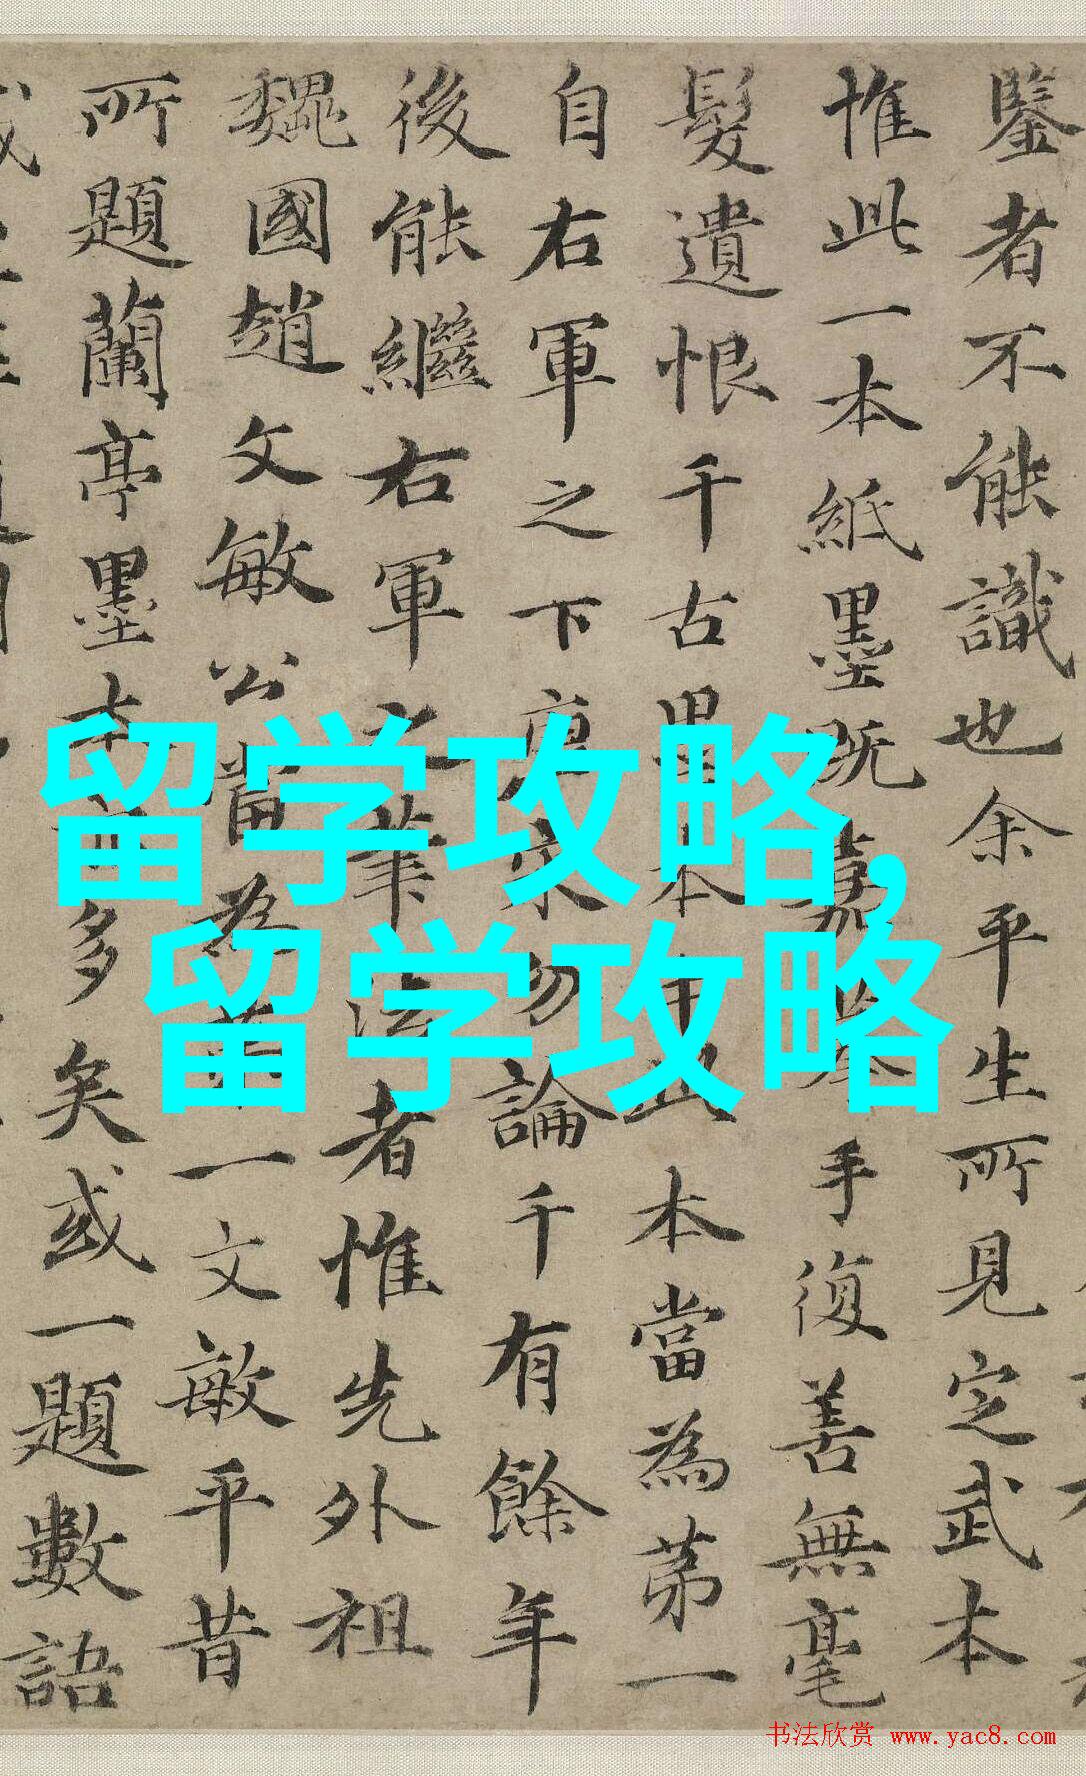 鑒者不能識也余平生所見定武本
惟此一本紙墨既嘉摹手復善無毫
髮遺恨千古墨本中此本當為第一
自右軍之下宋勿論千有餘年
後能繼右軍之筆法者惟先外祖
魏國趙文敏公當為第一文敏平昔
所題蘭亭墨本亦多矣或一題數語
留学攻略,
留学攻略
书法欣赏 www.yac8.com